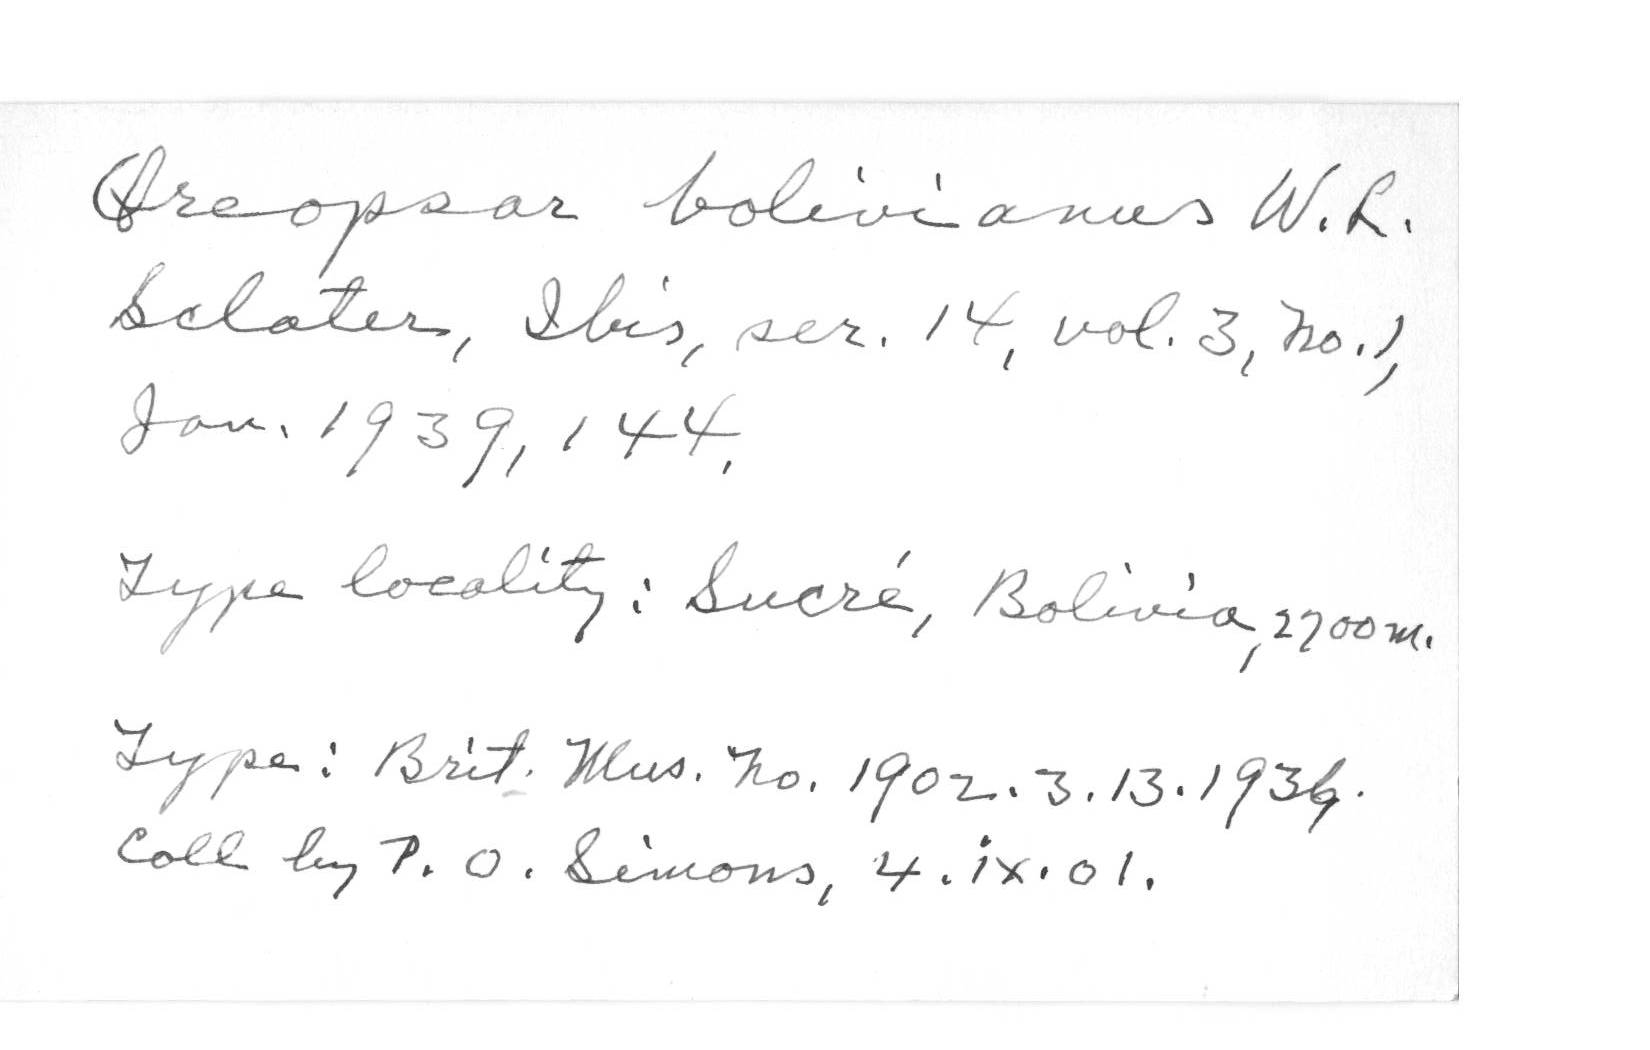 Oreopsar bolivianus W.L.
Sclater, Ibis, ser. 14, vol. 3, No. 1,
Jan. 1939, 144.
Type locality: Sucré, Bolivia, 2700 m.
Type: Brit. Mus. No. 1902.3.13.1936.
Coll by P. O. Simons, 4.ix.01.